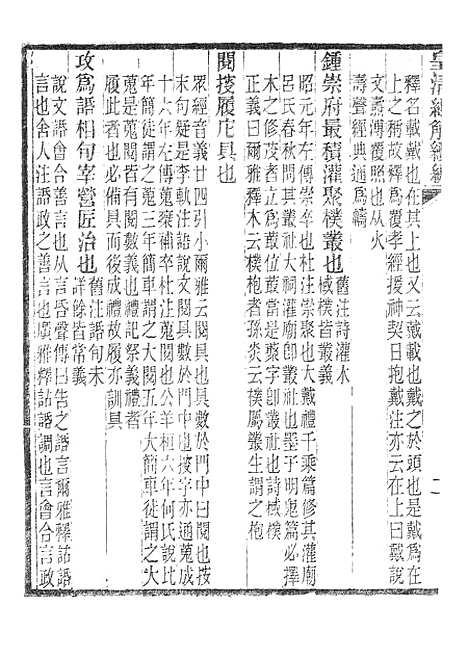 皇清經解續編
釋名載戴也在其上也又云戴載也戴之於頭也是戴爲在
上之稱故釋爲覆孝經援神契曰抱戴注亦云在上曰戴說
文燾溥覆照也从火
壽聲經典通爲幬
鍾崇府最積灌聚樸叢也舊注詩灌木
棫樸皆叢義
昭元年左傳崇卒也杜注崇聚也大戴禮千乘篇修其灌廟
呂氏春秋問其叢社大祠灌廟卽叢社也墨子明鬼篇必擇
木之修茂者立爲叢位叢當是菆字卽叢社也詩棫樸
正義曰爾雅釋木云樸枹者孫炎云樸屬叢生謂之枹
閱技履庀具也
眾經音義廿四引小爾雅云閱具也具數於門中曰閱也按
末句疑是李軌注語說文閱具數於門中也技字亦通蒐成
十六年左傳蒐乘補卒杜注蒐閱也公羊桓六年何氏說比
年簡徒謂之蒐三年簡車謂之大閱五年大簡車徒謂之大
蒐是蒐閱皆有閱數義也禮記祭義禮者
履此者也必備具而後成禮故履亦訓具
攻爲詣相旬宰營匠治也舊注詣旬未
詳餘皆常義
說文語會合善言也从言昏聲傳曰告之語言爾雅釋詁語
言也舍人注語政之善言也廣雅釋詁語調也言會合言政